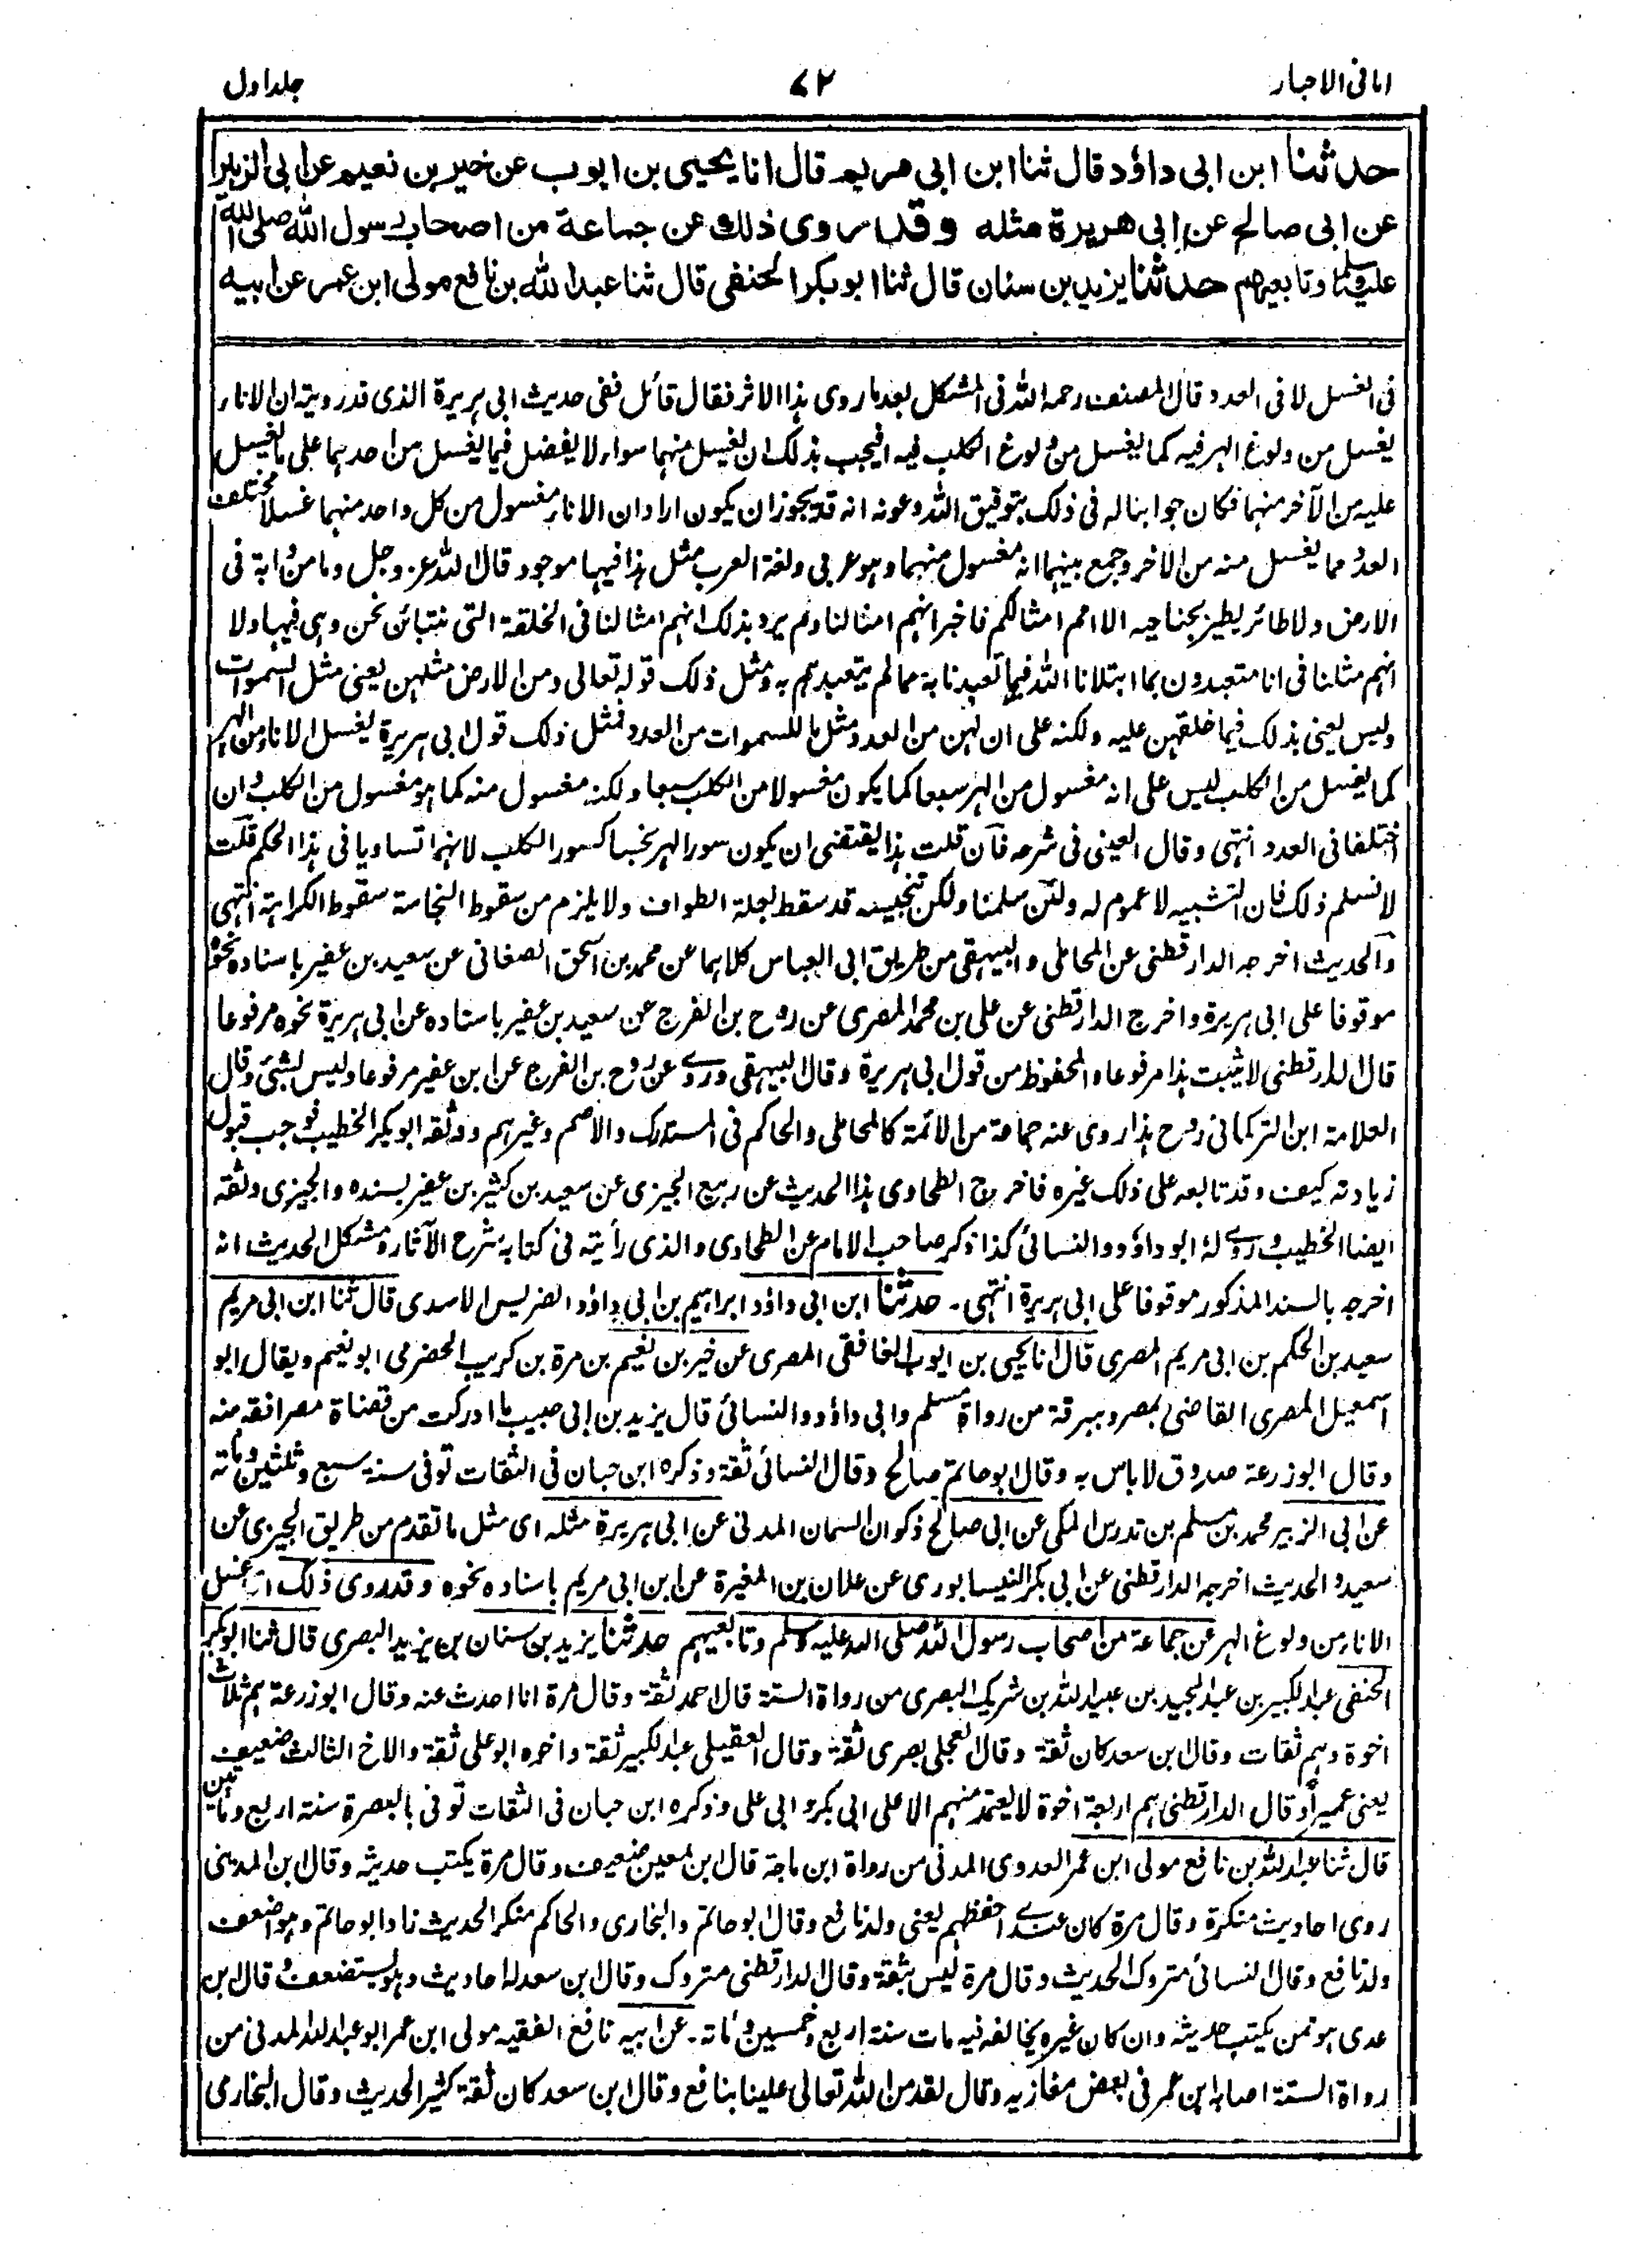 امانی الاحبار ۷۲ جلد اول
حدثنا ابن ابی داؤد قال ثنا ابن ابی مریم قال انا یحیی بن ایوب عن خیر بن نعیم عن ابی الزبیر
عن ابی صالح عن ابی هریرة مثله وقد روی ذلك عن جماعة من اصحاب رسول الله صلی الله
علیہ وسلم وتابعیهم حدثنا یزید بن سنان قال ثنا ابو بکر الحنفی قال ثنا عبد الله بن نافع مولی ابن عمر عن ابیه
فی الغسل لا فی العدد قال المصنف رحمہ اللہ فی المشکل بعد ما روی ہذا الاثر فقال قائل ففی حدیث ابی ہریرة الذی قد رویتہ ان الاناء
یغسل من ولوغ الہر فیہ کما یغسل من ولوغ الکلب فیہ افیجب بذلک ان یغسل منہما سواء لا یفضل فیما یغسل من احدہما علی ما یغسل
علیہ من الآخر منہما فکان جوابنا لہ فی ذلک بتوفیق اللہ وعونہ انہ قد یجوز ان یکون اراد ان الاناء مغسول من کل واحد منہما غسلا مختلف
العدد مما یغسل منہ من الاخر وجمع بینہما انہ مغسول منہما وہو عربی ولغة العرب مثل ہذا فیہا موجود قال اللہ عز وجل وما من دابة فی
الارض ولا طائر یطیر بجناحیہ الا امم امثالکم فاخبر انہم امثالنا ولم یرد بذلک انہم امثالنا فی الخلقة التی نتبائن نحن وہی فیہا ولا
انہم مثلنا فی انا متعبدون بما ابتلانا اللہ فیما تعبدنا بہ مما لم یتعبدہم بہ ومثل ذلک قولہ تعالی ومن الارض مثلہن یعنی مثل السموات
ولیس یعنی بذلک فیما خلقہن علیہ ولکنہ علی ان لہن من العدد مثل ما للسموات من العدد فمثل ذلک قول ابی ہریرة یغسل الاناء من الہر
کما یغسل من الکلب لیس علی انہ مغسول من الہر سبعا کما یکون مغسولا من الکلب سبعا ولکنہ مغسول منہ کما ہو مغسول من الکلب وان
اختلفا فی العدد انتہی وقال العینی فی شرحہ فان قلت ہذا یقتضی ان یکون سور الہر نجسا کسور الکلب لانہما تساویا فی ہذا الحکم قلت
لا نسلم ذلک فان التشبیہ لا عموم لہ ولئن سلمنا ولکن تنجیسہ قد سقط لعلة الطواف ولا یلزم من سقوط النجاسة سقوط الکراہة انتہی
والحدیث اخرجہ الدارقطنی عن المحاملی والبیہقی من طریق ابی العباس کلاہما عن محمد بن اسحق الصغانی عن سعید بن عفیر باسنادہ نحوہ
موقوفا علی ابی ہریرة واخرج الدارقطنی عن علی بن محمد المصری عن روح بن الفرج عن سعید بن عفیر باسنادہ عن ابی ہریرة نحوہ مرفوعا
قال الدارقطنی لا یثبت ہذا مرفوعا والمحفوظ من قول ابی ہریرة وقال البیہقی وروے عن روح بن الفرج عن ابن عفیر مرفوعا ولیس بشئ وقال
العلامة ابن الترکمانی روح ہذا روی عنہ جماعة من الائمة کالمحاملی والحاکم فی المستدرک والاصم وغیرہم ووثقہ ابو بکر الخطیب فوجب قبول
زیادتہ کیف وقد تابعہ علی ذلک غیرہ فاخرج الطحاوی ہذا الحدیث عن ربیع الجیزی عن سعید بن کثیر بن عفیر بسندہ والجیزی وثقہ
ایضا الخطیب وروے لہ ابو داؤد والنسائی کذا ذکر صاحب الامام عن الطحاوی والذی رأیتہ فی کتابہ شرح الآثار ومشکل الحدیث انہ
اخرجہ بالسند المذکور موقوفا علی ابی ہریرة انتہی۔ حدثنا ابن ابی داؤد ابراہیم بن ابی داؤد الضریس الاسدی قال ثنا ابن ابی مریم
سعید بن الحکم بن ابی مریم المصری قال انا یحیی بن ایوب الغافقی المصری عن خیر بن نعیم بن مرة بن کریب الحضرمی ابو نعیم ویقال ابو
اسمعیل المصری القاضی بمصر وببرقة من رواة مسلم وابی داؤد والنسائی قال یزید بن ابی حبیب ما ادرکت من قضاة مصر افقہ منہ
وقال ابو زرعة صدوق لا باس بہ وقال ابو حاتم صالح وقال النسائی ثقة وذکرہ ابن حبان فی الثقات توفی سنة سبع وثلثین ومائة
عن ابی الزبیر محمد بن مسلم بن تدرس المکی عن ابی صالح ذکوان السمان المدنی عن ابی ہریرة مثلہ ای مثل ما تقدم من طریق الجیزی عن
سعید والحدیث اخرجہ الدارقطنی عن ابی بکر النیسابوری عن علان بن المغیرة عن ابن ابی مریم باسنادہ نحوہ وقد روی ذلک ای غسل
الاناء من ولوغ الہر عن جماعة من اصحاب رسول اللہ صلی اللہ علیہ وسلم وتابعیہم حدثنا یزید بن سنان بن یزید البصری قال ثنا ابو بکر
الحنفی عبد الکبیر بن عبد المجید بن عبید اللہ بن شریک البصری من رواة الستة قال احمد ثقة وقال مرة انا احدث عنہ وقال ابو زرعة ہم ثلاث
اخوة وہم ثقات وقال ابن سعد کان ثقة وقال العجلی بصری ثقة وقال العقیلی عبد الکبیر ثقة واخوہ ابو علی ثقة والاخ الثالث ضعیف
یعنی عمیرا وقال الدارقطنی ہم اربعة اخوة لا یعتمد منہم الا علی ابی بکر وابی علی وذکرہ ابن حبان فی الثقات توفی بالبصرة سنة اربع ومأتین
قال ثنا عبد اللہ بن نافع مولی ابن عمر العدوی المدنی من رواة ابن ماجة قال ابن معین ضعیف وقال مرة یکتب حدیثہ وقال ابن المدینی
روی احادیث منکرة وقال مرة کان عندے احفظہم یعنی ولد نافع وقال ابو حاتم والبخاری والحاکم منکر الحدیث زاد ابو حاتم وہو اضعف
ولد نافع وقال النسائی متروک الحدیث وقال مرة لیس بثقة وقال الدارقطنی متروک وقال ابن سعد لہ احادیث وہو یستضعف وقال ابن
عدی ہو ممن یکتب حدیثہ وان کان غیرہ یخالفہ فیہ مات سنة اربع وخمسین ومائة۔ عن ابیہ نافع الفقیہ مولی ابن عمر ابو عبد اللہ المدنی من
رواة الستة اصابہ ابن عمر فی بعض مغازیہ وقال لقد من اللہ تعالی علینا بنافع وقال ابن سعد کان ثقة کثیر الحدیث وقال البخاری